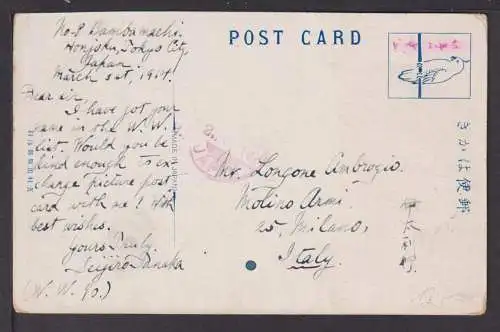 No-8 Bambamachi.
Honjoku, Tokyo City
Japan.
March 1st, 1914.
Dear sir.
I have got your
name in the W. W.
list. Would you be
kind enough to ex-
change picture post
card with me! With
best wishes.
Yours Truly.
Seijiro Tanaka
(W. W. 90.)
POST CARD
Mr. Longone Ambrogio.
Molino Armi.
25, Milano,
Italy.
きかは便郵